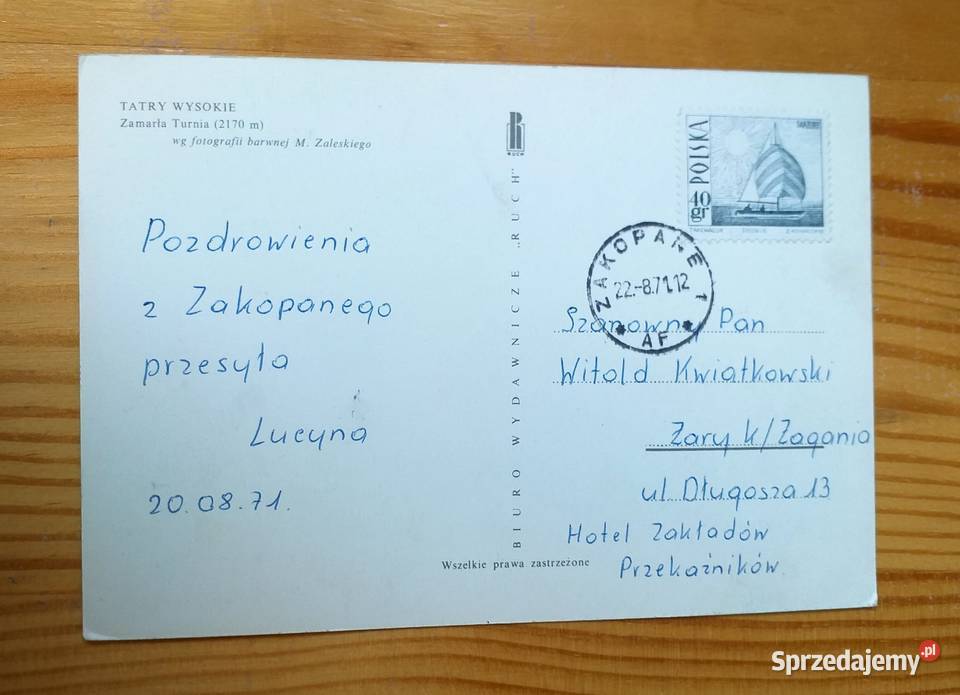 TATRY WYSOKIE
Zamarła Turnia (2170 m)
wg fotografii barwnej M. Zaleskiego
RUCH
POLSKA
40 gr
ZAKOPANE 1
22.-8.71.12
* AF *
Pozdrowienia
z Zakopanego
przesyła
Lucyna
20.08.71.
BIURO WYDAWNICZE „RUCH"
Szanowny Pan
Witold Kwiatkowski
Żary k/Żagania
ul Długosza 13
Hotel Zakładów
Przekaźników
Wszelkie prawa zastrzeżone
Sprzedajemy.pl